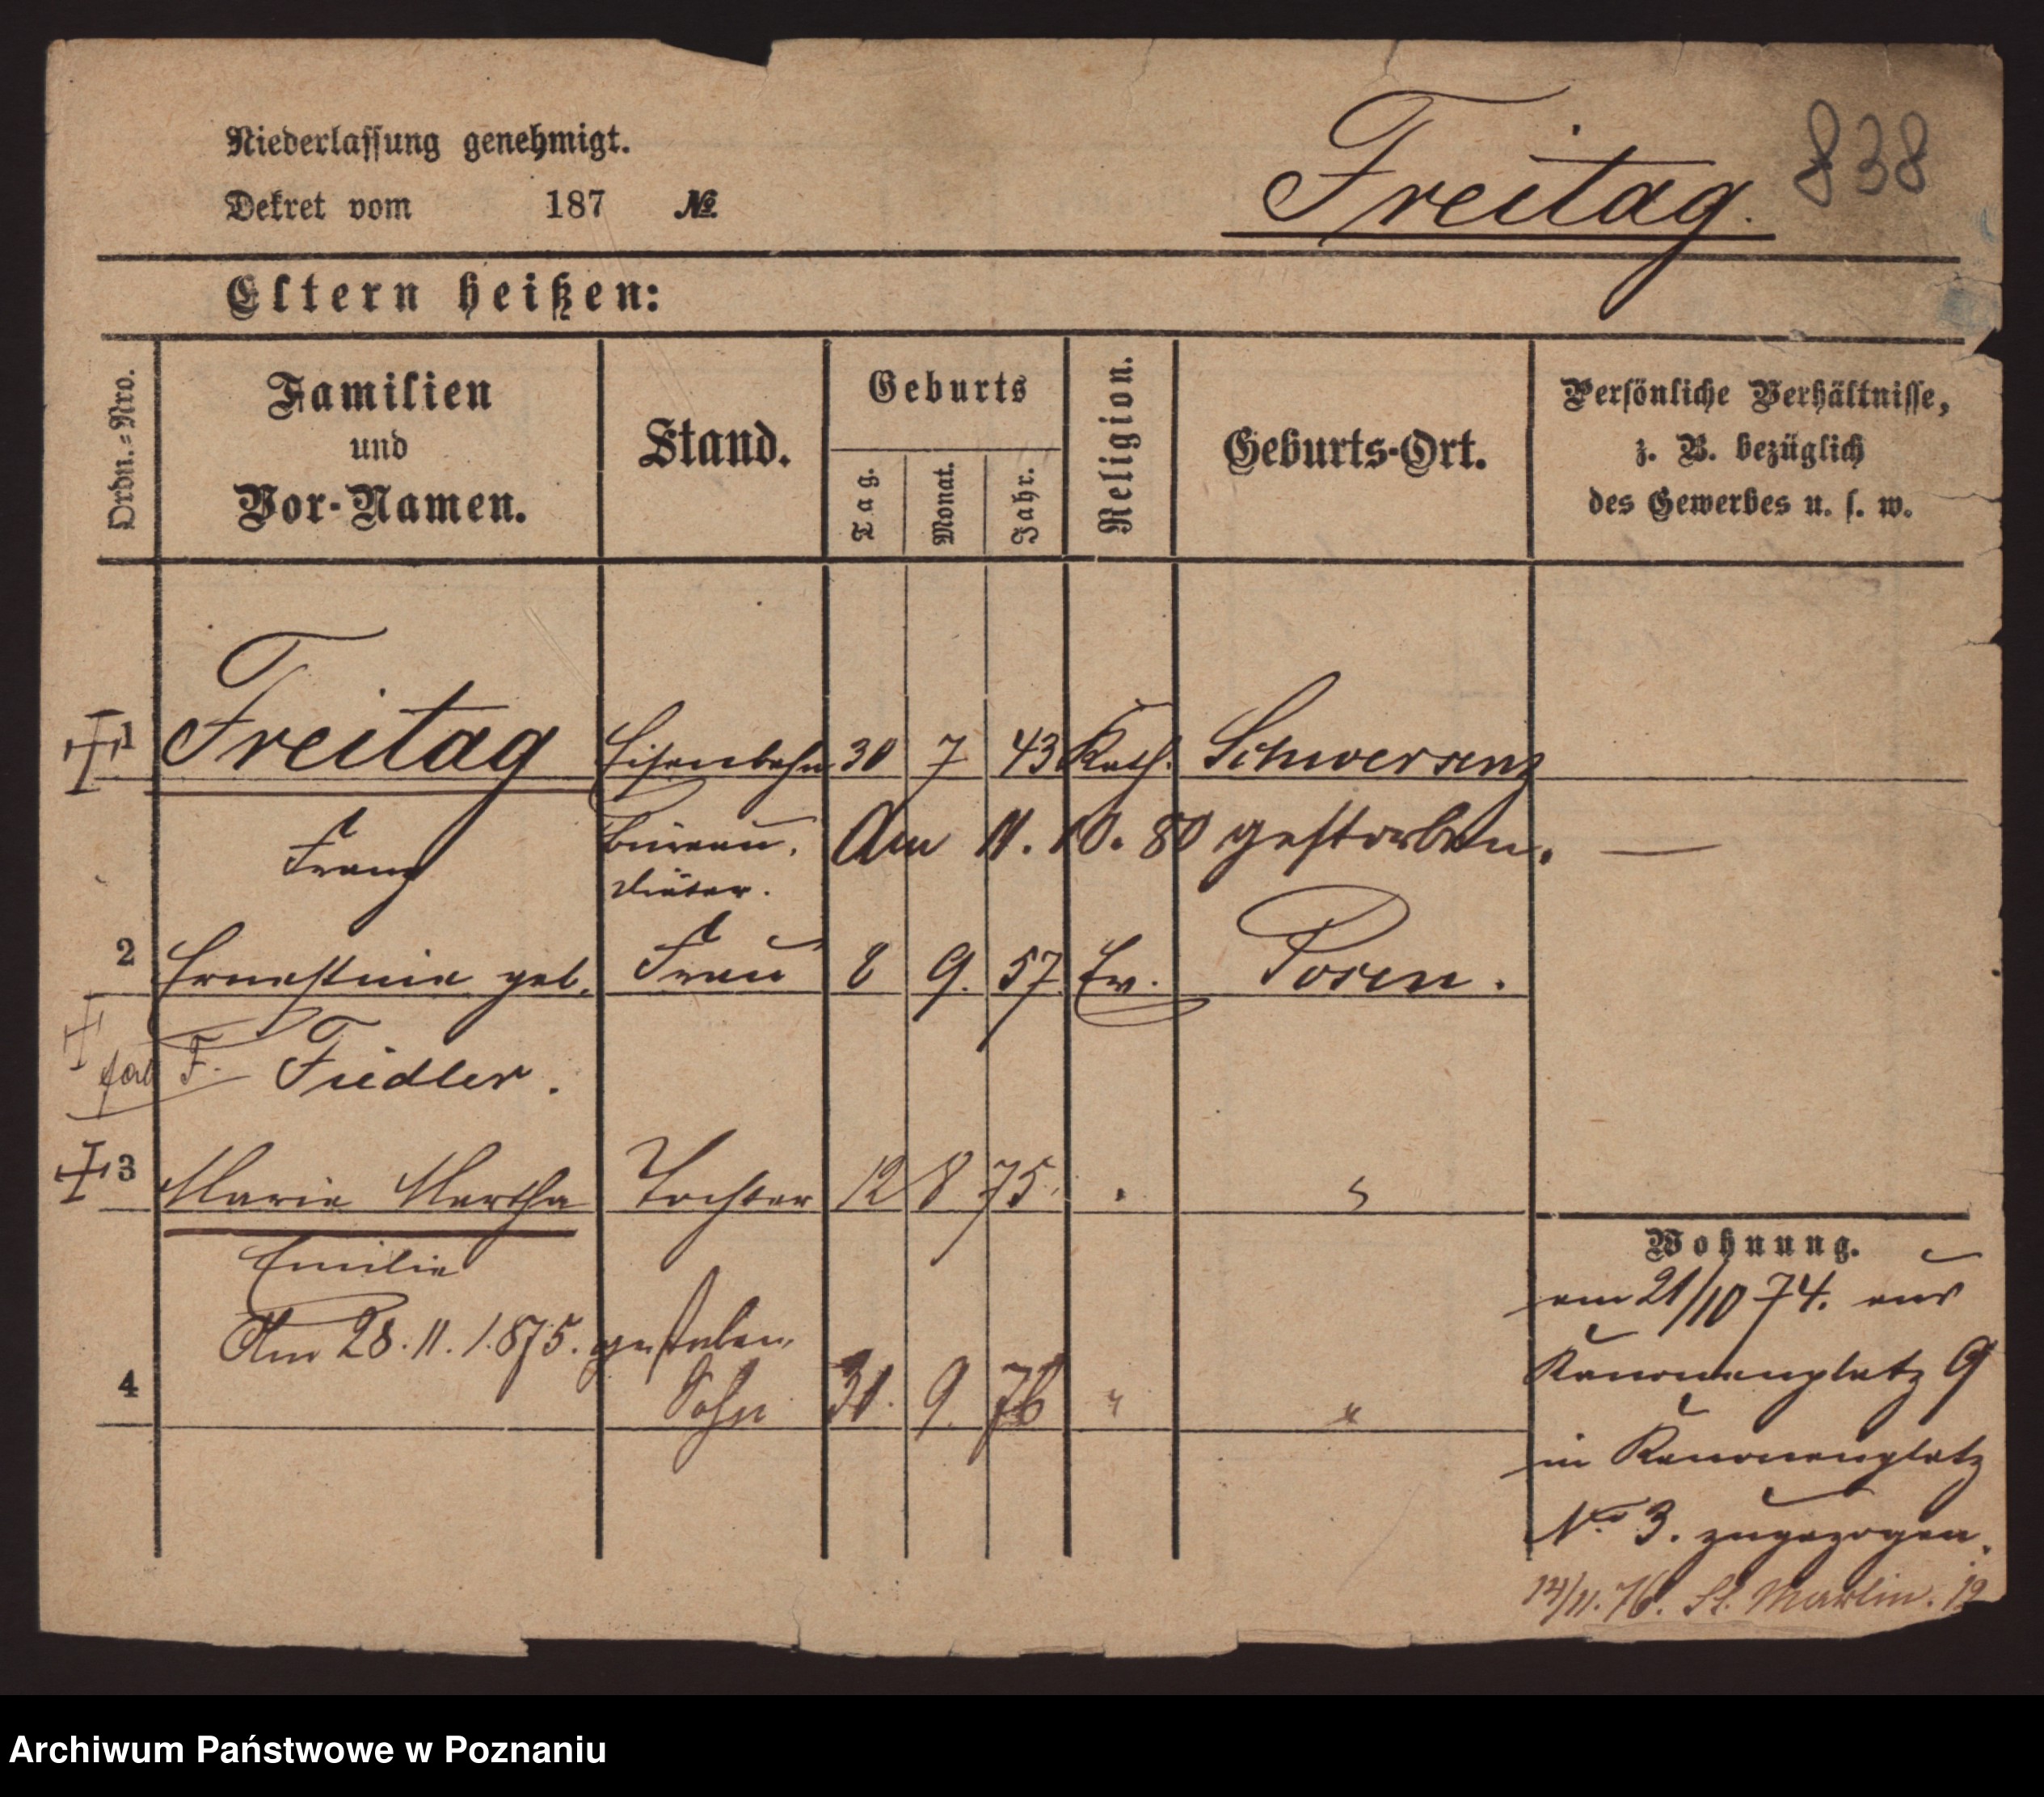 Niederlassung genehmigt.
Dekret vom 187 №
Freitag. 838
Eltern heißen:
Ordn.=Nro.
Familien
und
Vor-Namen.
Stand.
Geburts
Tag.
Monat.
Jahr.
Religion.
Geburts-Ort.
Persönliche Verhältnisse,
z. B. bezüglich
des Gewerbes u. s. w.
1 Freitag Eisenbahn 30 7 43 Kath. Schwersenz
Franz Büreau. Am 11. 10. 80 gestorben. —
Diätar.
2 Ernestine geb. Frau 8 9. 57. Ev. Posen.
F. Fiedler.
3 Marie Martha Tochter 12 8 75.
Emilie
Am 28. 11. 1875. gestorben
4 Sohn 9. 76 "
Wohnung.
am 21/10 74. aus
Kanonenplatz 9
in Kanonenplatz
No. 3. zugezogen.
14/11. 76. St. Martin. 12
Archiwum Państwowe w Poznaniu